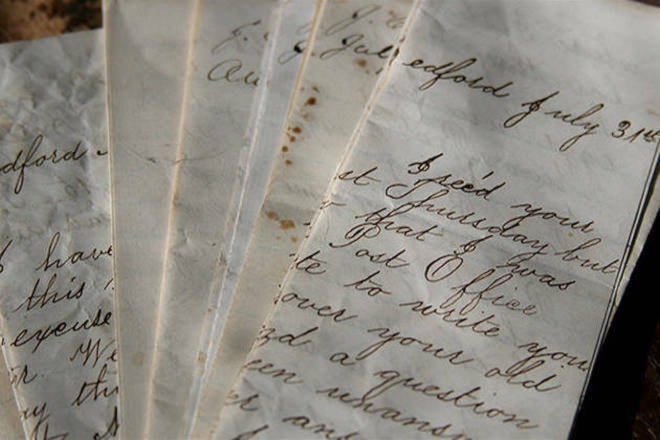 dford
I have
this
excuse
r. We
y th
J.
Au
J.
Jul
edford July 31st
I rec'd your
st Thursday but
that I was
Post Office
te to write you
over your old
zd a question
een unansw
er an